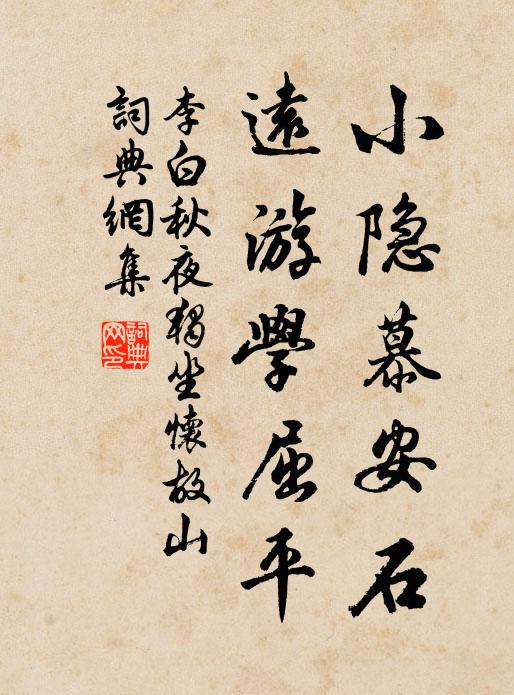 小隐慕安石
遠游學屈平
李白秋夜獨坐懷故山
詞典網集
詞典
网印